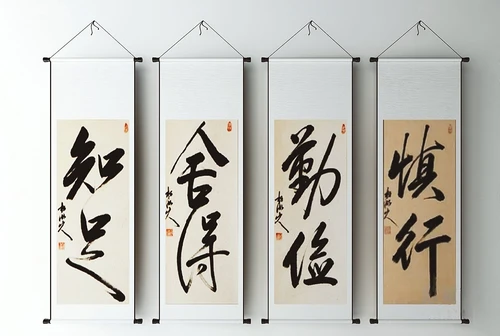 知足
舍得
勤俭
慎行